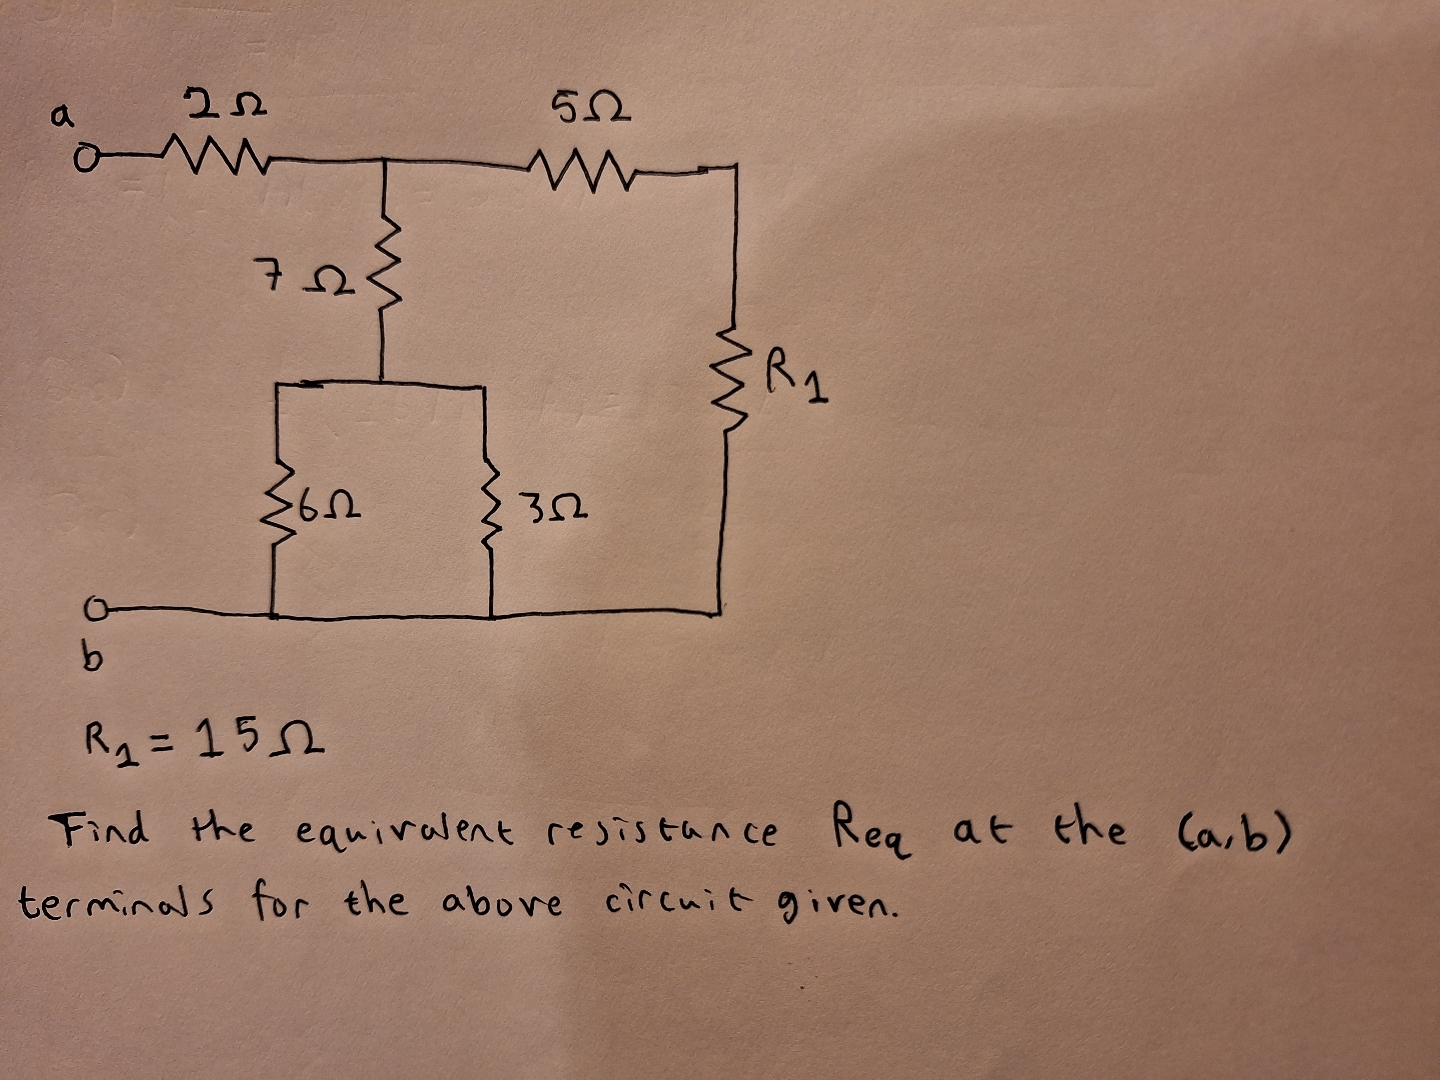 a
2Ω
5Ω
7Ω
R1
6Ω
3Ω
b
R1 = 15Ω
Find the equivalent resistance Req at the (a,b)
terminals for the above circuit given.